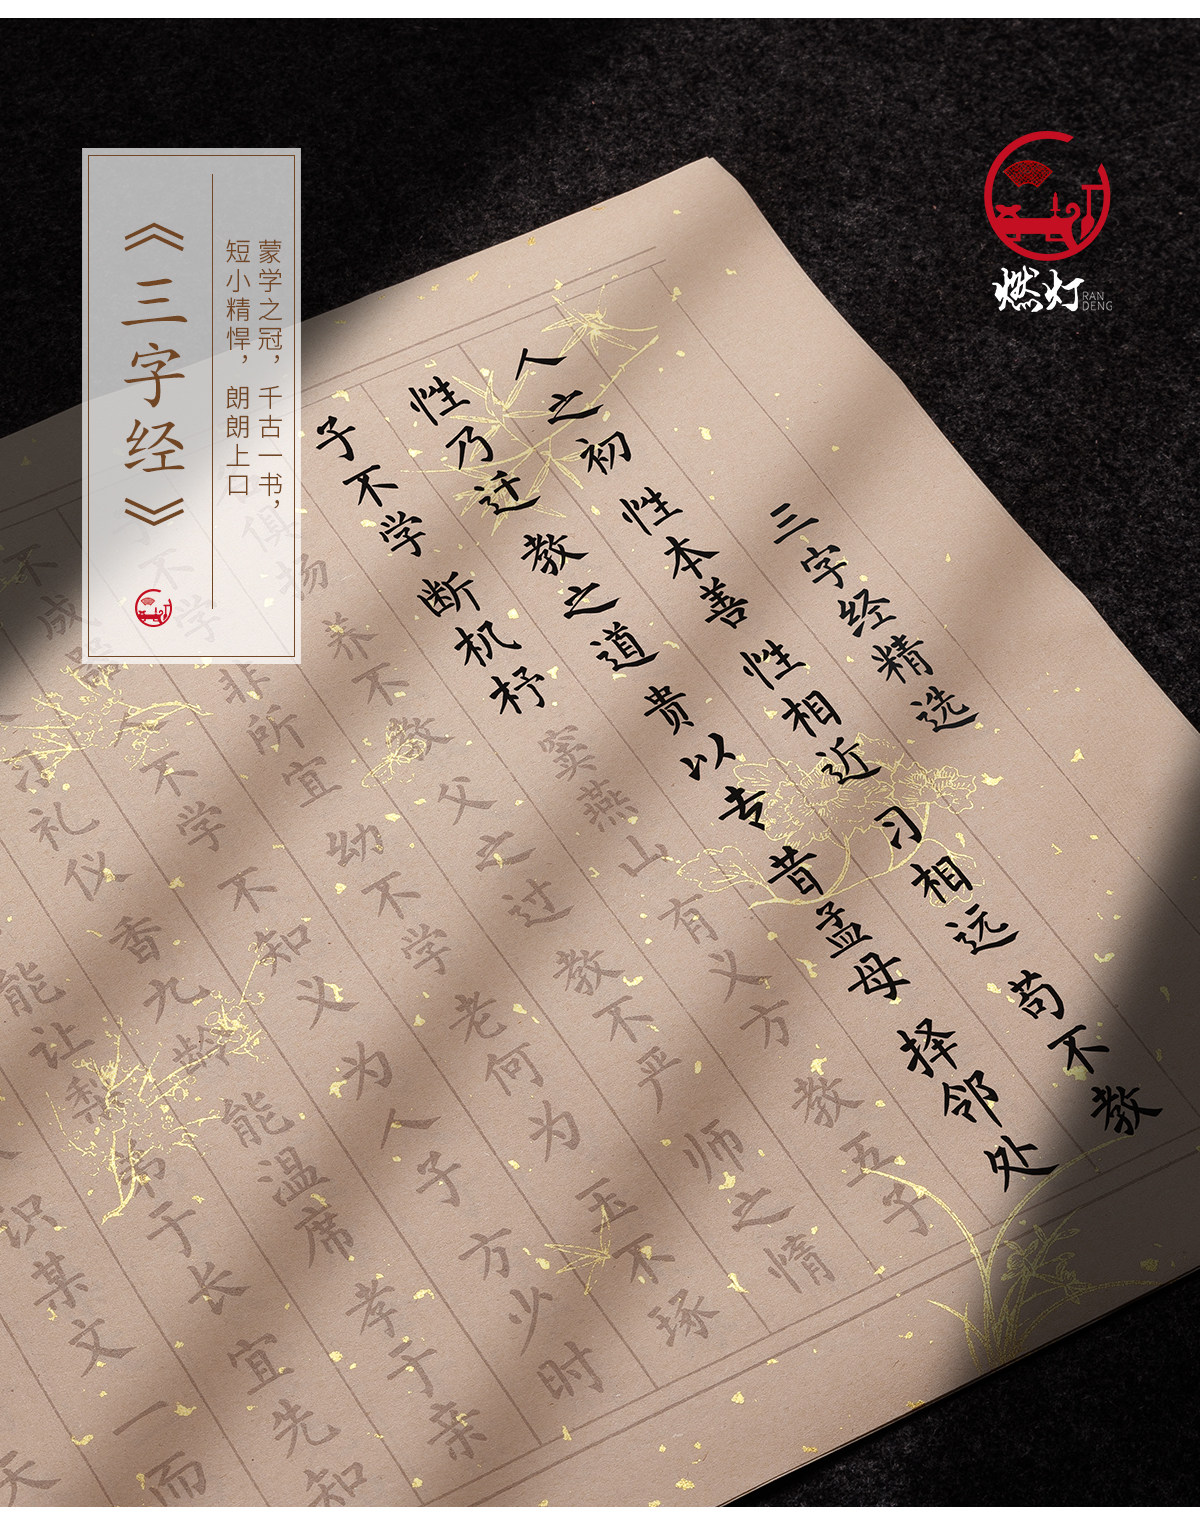 《三字经》
蒙学之冠，千古一书，
短小精悍，朗朗上口
燃灯
RAN
DENG
三字经精选
人之初 性本善 性相近 习相远 苟不教
性乃迁 教之道 贵以专 昔孟母 择邻处
子不学 断机杼 窦燕山 有义方 教五子
俱扬 养不教 父之过 教不严 师之惰
子不学 非所宜 幼不学 老何为 玉不琢
不成器 人不学 不知义 为人子 方少时
习礼仪 香九龄 能温席 孝于亲
能让梨 弟于长 宜先知
识某文 一而
天